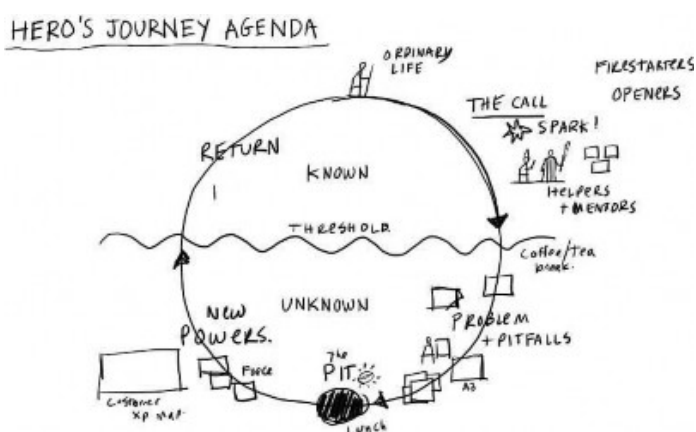 HERO'S JOURNEY AGENDA
ORDINARY
LIFE
FIRESTARTERS
OPENERS
THE CALL
SPARK!
HELPERS
+ MENTORS
RETURN
KNOWN
THRESHOLD
Coffee/Tea
break.
UNKNOWN
PROBLEM
+ PITFALLS
NEW
POWERS.
The
PIT
Force
A3
Customer
XP map
Lunch